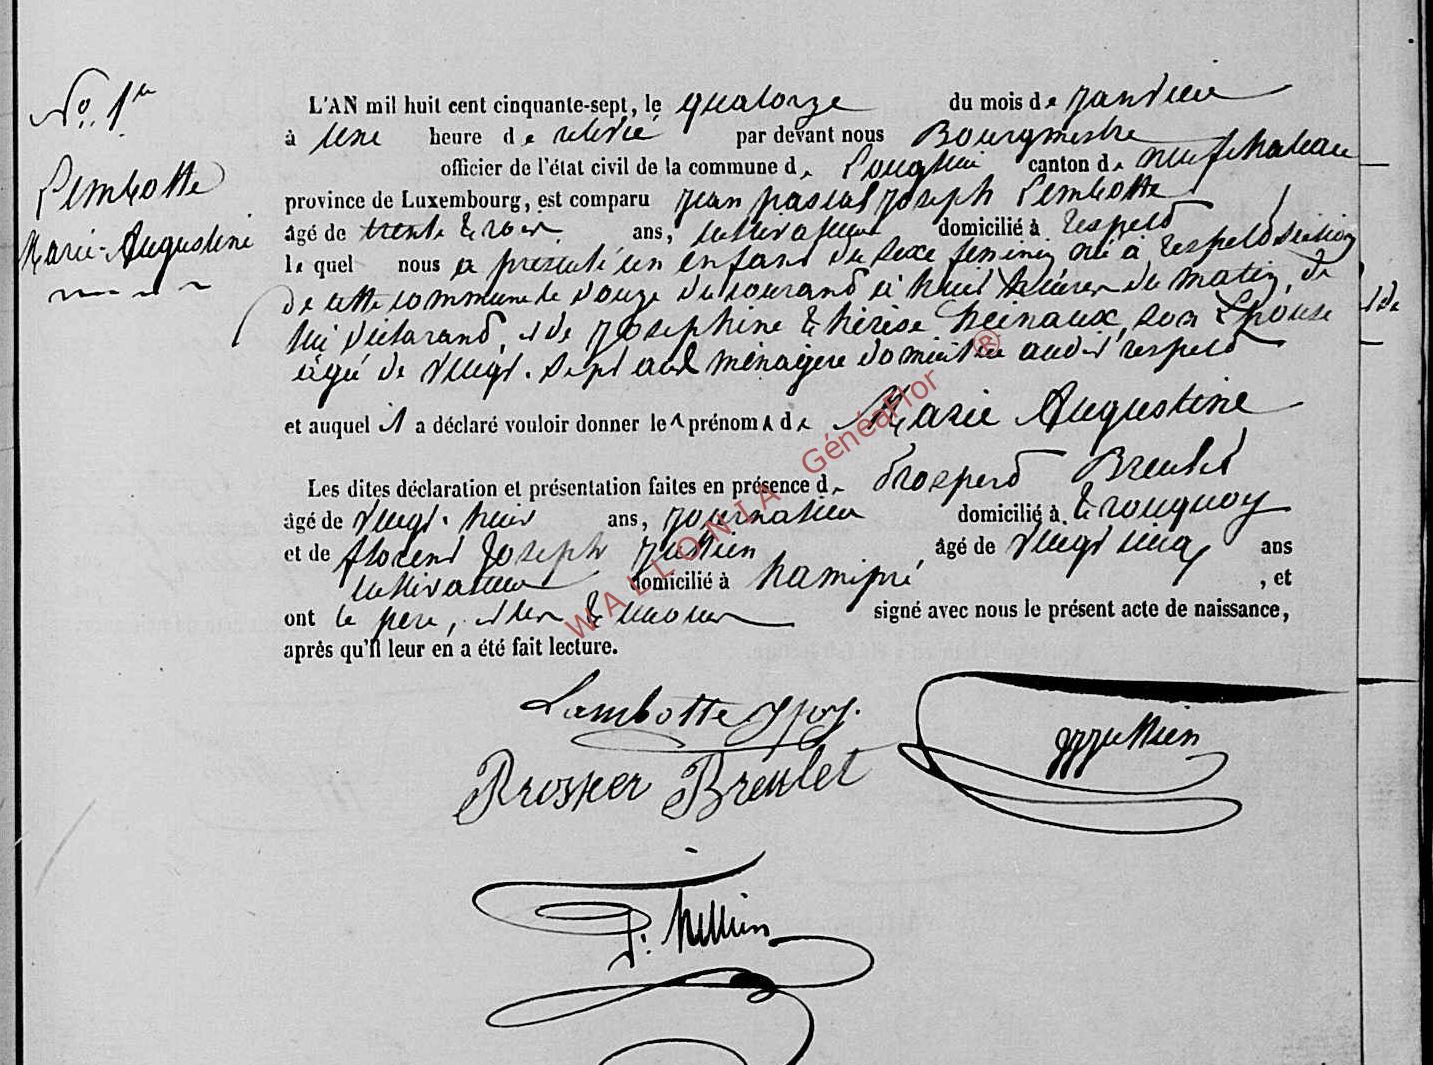 N° 1er
Lambotte
Marie-Augustine
L'AN mil huit cent cinquante-sept, le quatorze du mois de janvier
à une heure de relevée par devant nous Bourgmestre
officier de l'état civil de la commune de Longlier canton de neufchateau
province de Luxembourg, est comparu jean pascal joseph Lambotte
âgé de trente trois ans, cultivateur domicilié à Respelt
lequel nous a présenté un enfant du sexe feminin né à respelt section
de cette commune le douze du courant à huit heures du matin, de
lui déclarant, et de josephine thérèse heinaux, son Epouse
agée de vingt-sept ans ménagere domiciliée audit respelt
et auquel il a déclaré vouloir donner les prénoms de Marie Augustine
Les dites déclaration et présentation faites en présence de Prosper Breulet
âgé de vingt-huit ans, journalier domicilié à tronquoy
et de florent joseph jullien âgé de vingt cinq ans
cultivateur domicilié à hamipré , et
ont le père, et les témoins signé avec nous le présent acte de naissance,
après qu'il leur en a été fait lecture.
Lambotte jpj.
Prosper Breulet
WALLONIA GénéaFlor ®